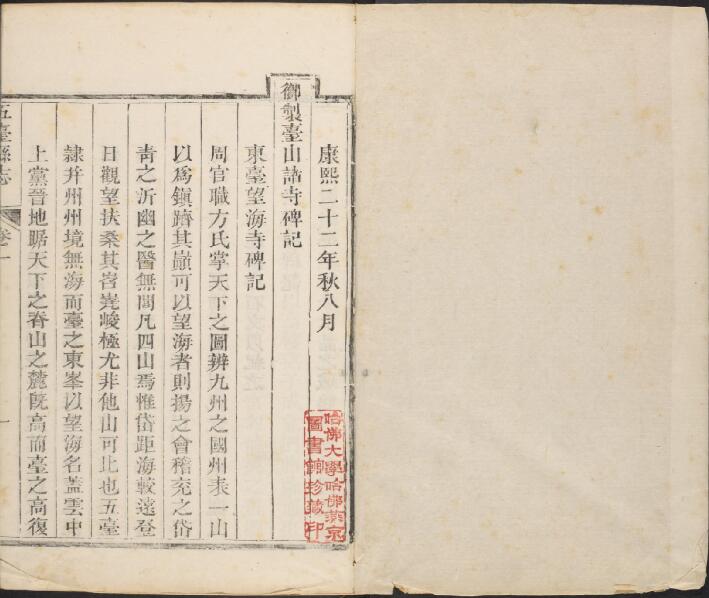 康熙二十二年秋八月
御製臺山諸寺碑記
東臺望海寺碑記
周官職方氏掌天下之圖辨九州之國州表一山
以爲鎮躋其巔可以望海者則揚之會稽兗之岱
青之沂幽之醫無閭凡四山焉惟岱距海較遠登
日觀望扶桑其岧嶤峻極尤非他山可比也五臺
隸并州州境無海而臺之東峯以望海名蓋雲中
上黨晉地踞天下之脊山之麓旣高而臺之高復
五臺縣志
卷一
一
哈佛大學哈佛燕京
圖書館珍藏印